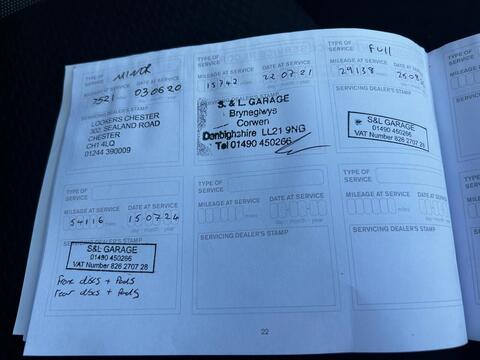 TYPE OF
SERVICE MINOR
MILEAGE AT SERVICE DATE AT SERVICE
7521 miles 03 06 20
SERVICING DEALER'S STAMP
LOOKERS CHESTER
302, SEALAND ROAD
CHESTER
CH1 4LQ
01244 390009
TYPE OF
SERVICE
MILEAGE AT SERVICE DATE AT SERVICE
15742 22 07 21
S. & L. GARAGE
Bryneglwys
Corwen
Denbighshire LL21 9NG
Tel 01490 450266
TYPE OF
SERVICE Full
MILEAGE AT SERVICE DATE AT SERVICE
29138 miles
SERVICING DEALER'S STAMP
S&L GARAGE
01490 450266
VAT Number 826 2707 28
TYPE OF
SERVICE
MILEAGE AT SERVICE DATE AT SERVICE
54116 miles 15 07 24
day month year
SERVICING DEALER'S STAMP
S&L GARAGE
01490 450266
VAT Number 826 2707 28
Front discs + Pads
rear discs + Pads
TYPE OF
SERVICE
MILEAGE AT SERVICE DATE AT SERVICE
miles day month year
SERVICING DEALER'S STAMP
TYPE OF
SERVICE
MILEAGE AT SERVICE DATE AT SERVICE
miles day month year
SERVICING DEALER'S STAMP
22